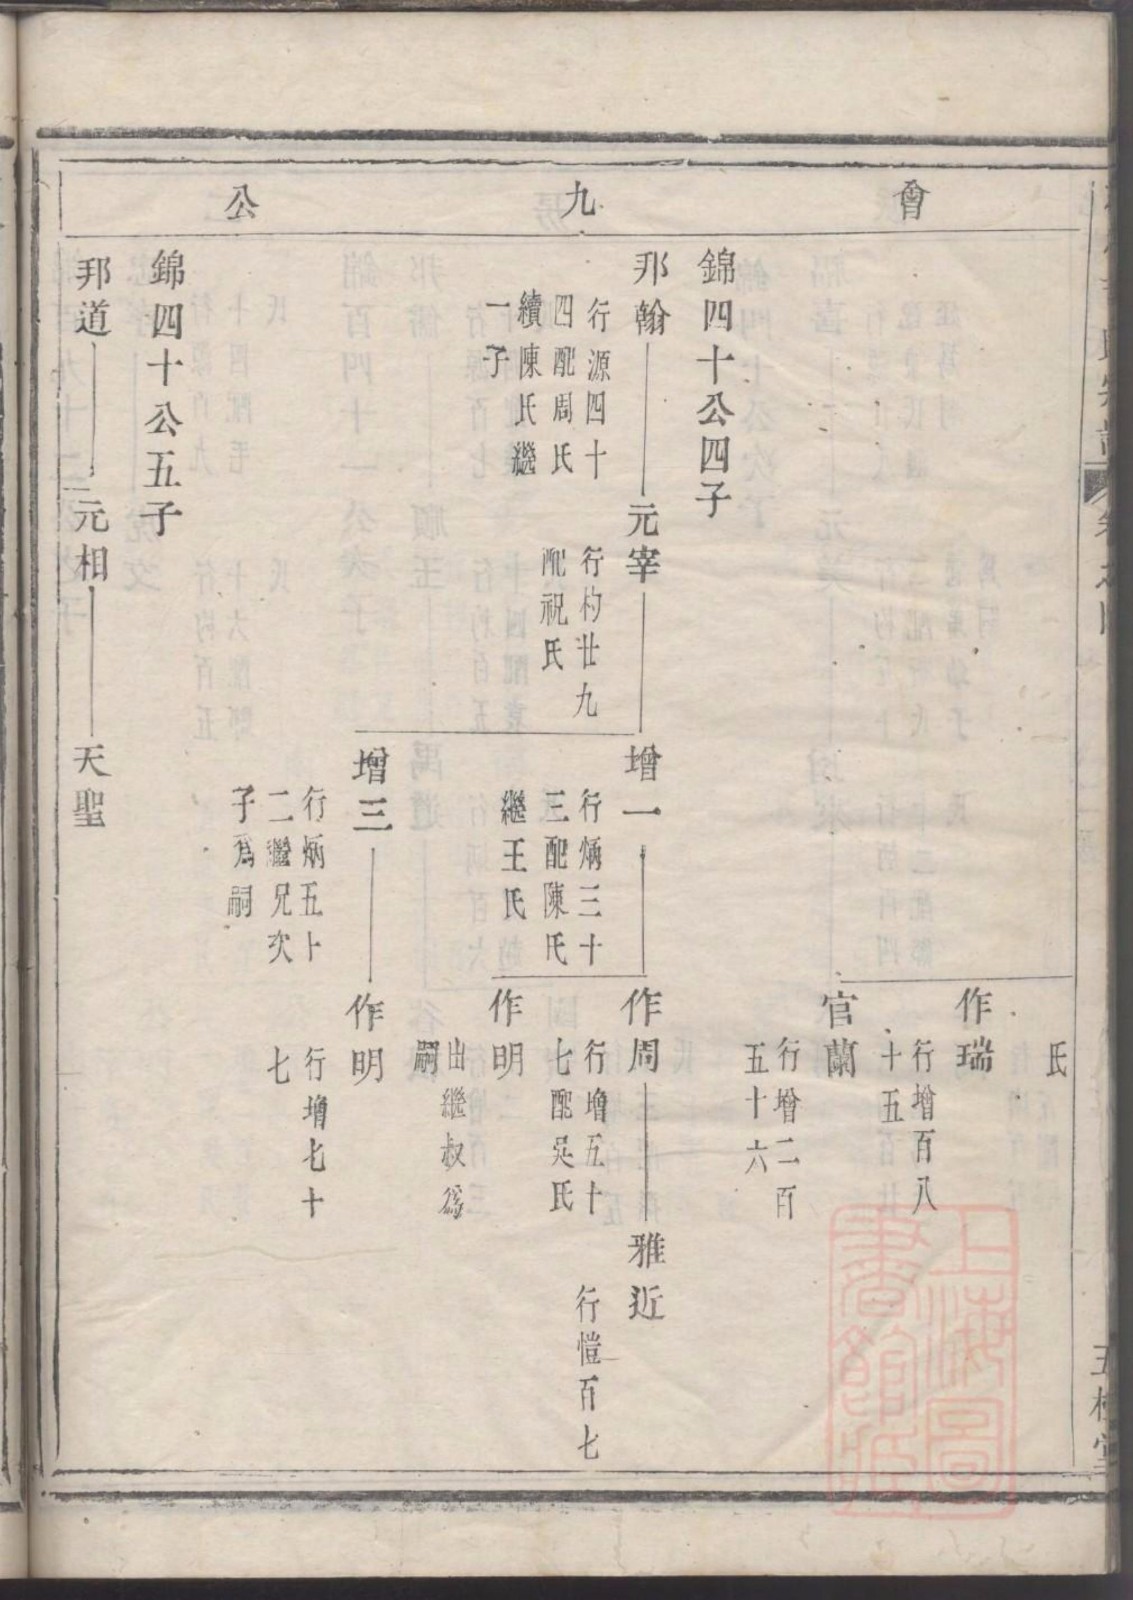 曾九公
氏
作瑞
行增百八
十五
官蘭
行增二百
五十六
錦四十公四子
邦翰
行源四十
四配周氏
續陳氏繼
一子
元宰
行枃廿九
配祝氏
增一
行炳三十
三配陳氏
繼王氏
作周
行增五十
七配吳氏
雅近
行愷百七
作明
出繼叔爲
嗣
增三
行炳五十
二繼兄次
子爲嗣
作明
行增七十
七
錦四十公五子
邦道
元相
天聖
上海圖書館藏